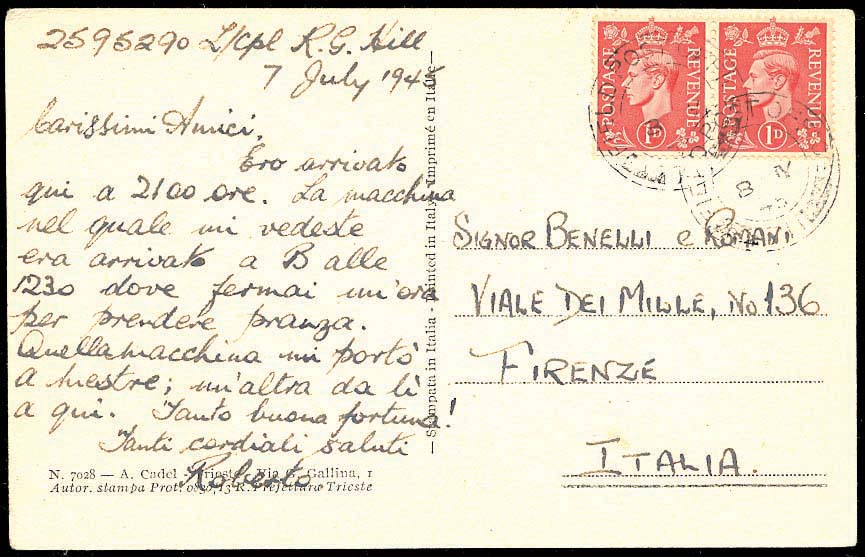 2595290 L/cpl R.G. Hill
7 July 194
Carissimi Amici,
Ero arrivato
qui a 2100 ore. La macchina
nel quale mi vedeste
era arrivato a B alle
1230 dove fermai un'ora
per prendere pranza.
Quella macchina mi portò
a Mestre; un'altra da lì
a qui. Tanto buona fortuna!
Tanti cordiali saluti
Roberto
N. 7028 — A. Cadel - Trieste, Via G. Gallina, 1
Autor. stampa Prot. R. Prefettura Trieste
— Stampata in Italia - Printed in Italy - Imprimé en Italie —
POSTAGE REVENUE
1D
POSTAGE REVENUE
1D
SIGNOR BENELLI e ROMANI
VIALE DEI MILLE, No 136
FIRENZE
ITALIA.